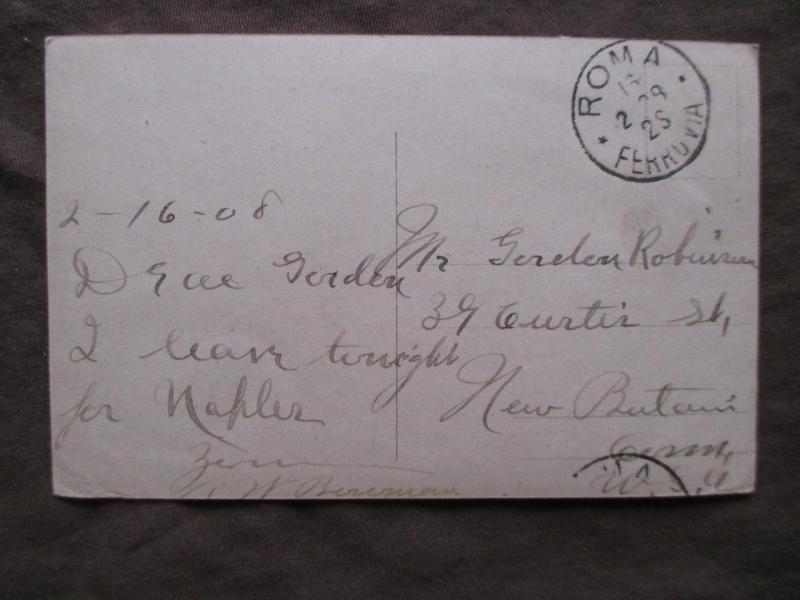 ROMA
FERROVIA
2-16-08
Dear Gordon
I leave tonight
for Naples
Mr Gordon Robinson
39 Curtis St,
New Britain
Conn,
U.S.A